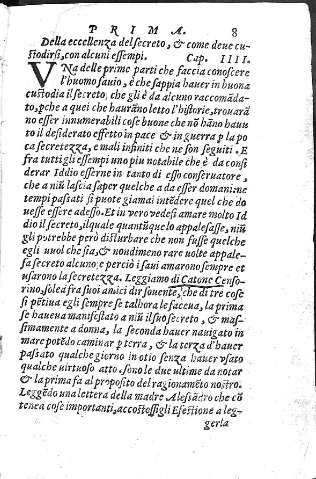 PRIMA. 8
Della eccellenza del secreto, & come deue cu-
stodirsi, con alcuni essempi. Cap. IIII.
VNa delle prime parti che faccia conoscere
l'huomo sauio, è che sappia hauer in buona
custodia il secreto, che gli è da alcuno raccomãda-
to, pche a quei che haurãno letto l'historie, trouarã
no esser innumerabili cose buone che nõ hãno hauu
to il desiderato effetto in pace & in guerra p la po
ca secretezza, e mali infiniti che ne son seguiti. E
fra tutti gli essempi uno piu notabile che è da consi
derar Iddio esserne in tanto di esso conseruatore,
che a niũ lascia saper quelche a da esser domani; ne
tempi passati si puote giamai intẽdere quel che do
uesse essere adesso. Et in vero vedesi amare molto Id
dio il secreto, ilquale quantũque lo appalesasse, niũ
gli potrebbe però disturbare che non fusse quelche
egli uuol che sia, & nondimeno rare uolte appale-
sa secreto alcuno: e perciò i saui amarono sempre et
usarono la secretezza. Leggiamo di Catone Censo-
rino, solea fra suoi amici dir souente, che di tre cose
si pẽtiua egli sempre se talhora le faceua, la prima
se haueua manifestato a niũ il suo secreto, & mas-
simamente a donna, la seconda hauer nauigato in
mare potẽdo caminar p terra, & la terza d'hauer
passato qualche giorno in otio senza hauer vsato
qualche uirtuoso atto. sono le due ultime da notar
& la prima fa al proposito del ragionamẽto nostro.
Leggẽdo una lettera della madre Alessãdro che cõ
tenea cose importanti, accostossigli Efestione a leg-
gerla